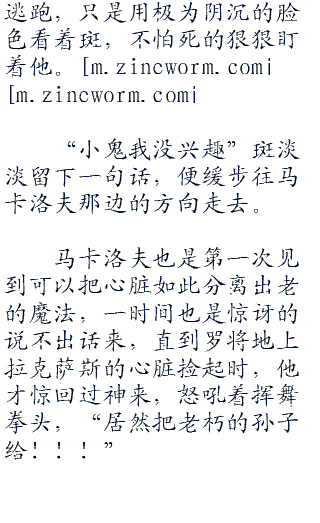 逃跑，只是用极为阴沉的脸
色看着斑，不怕死的狠狠盯
着他。[m.zincworm.com|
[m.zincworm.com|
“小鬼我没兴趣”斑淡
淡留下一句话，便缓步往马
卡洛夫那边的方向走去。
马卡洛夫也是第一次见
到可以把心脏如此分离出老
的魔法，一时间也是惊讶的
说不出话来，直到罗将地上
拉克萨斯的心脏捡起时，他
才惊回过神来，怒吼着挥舞
拳头，“居然把老朽的孙子
给！！！”